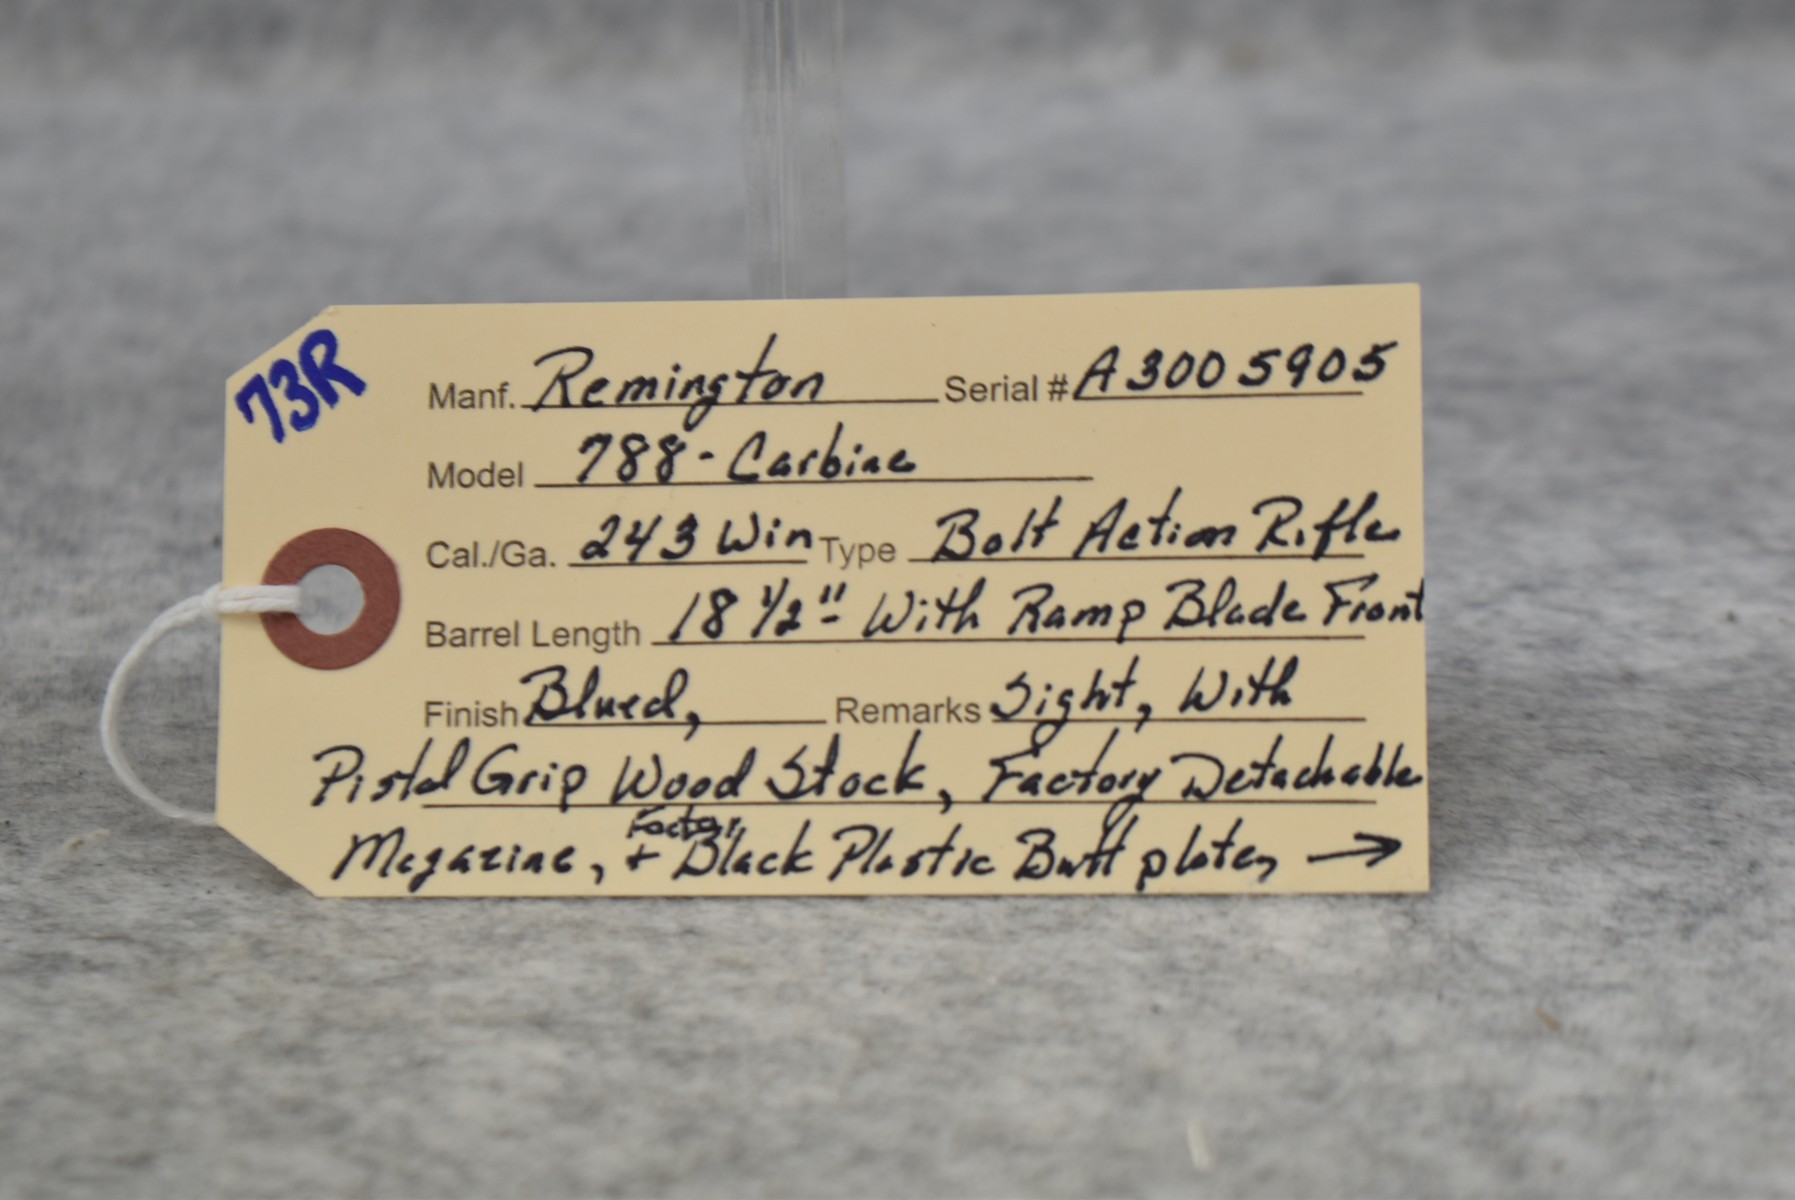 73R
Manf. Remington Serial # A3005905
Model 788 - Carbine
Cal./Ga. 243 Win Type Bolt Action Rifle
Barrel Length 18 1/2" With Ramp Blade Front
Finish Blued, Remarks Sight, With
Pistol Grip Wood Stock, Factory Detachable
Factory
Magazine, + Black Plastic Butt plate, →